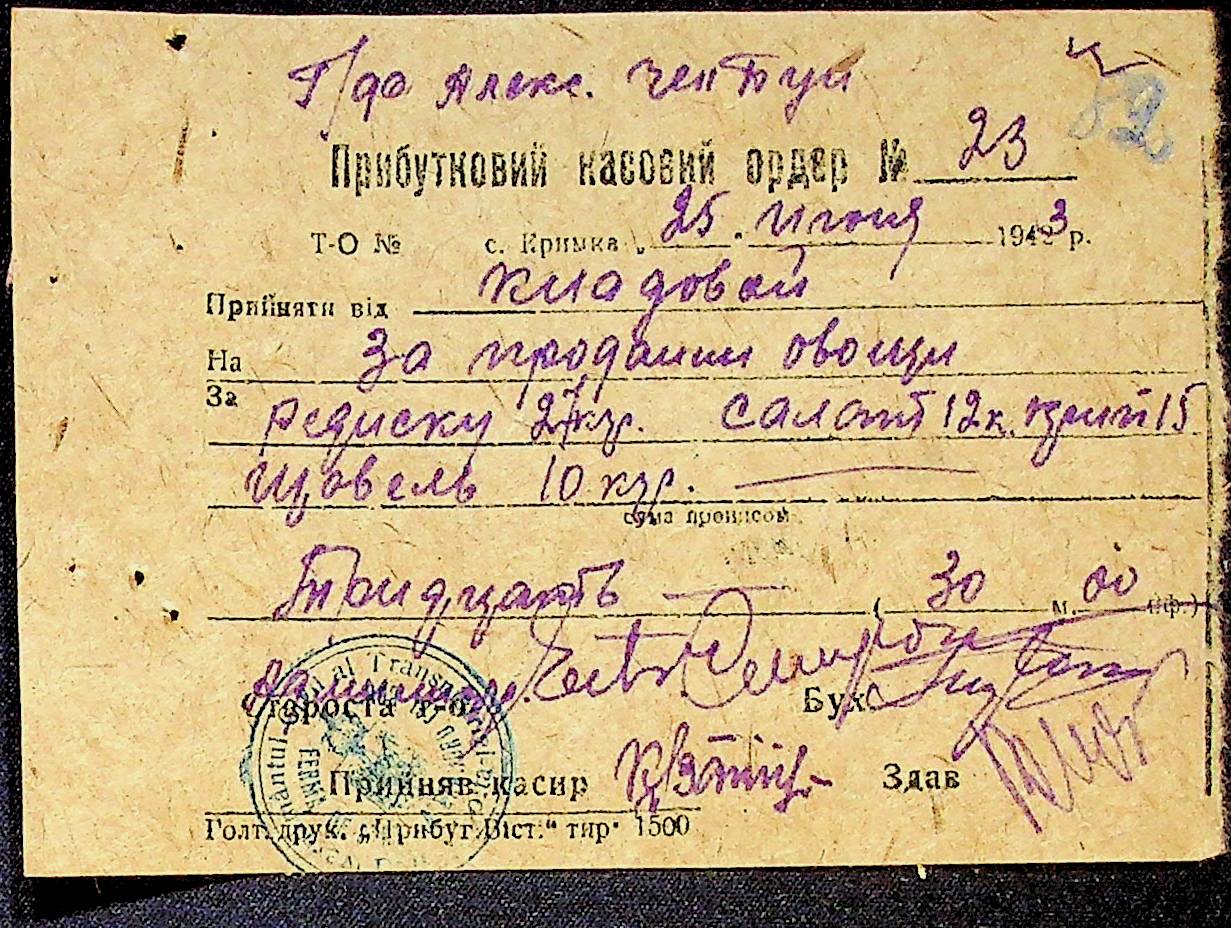 Г/да Алекс. Чентуи
82
Прибутковий касовий ордер № 23
Т-О № с. Кримка „ 25 " июня 1943 р.
Прийняти від кладовой
На за продании овощи
За редиску 27 кгр. салат 12 к. 15
щавель 10 кгр.
сума прописом
Тридцать ( 30 м. 00 пф.)
Староста т-о Бух.
Прийняв касир Здав
Голт. друк. „Прибут. Віст." тир. 1500